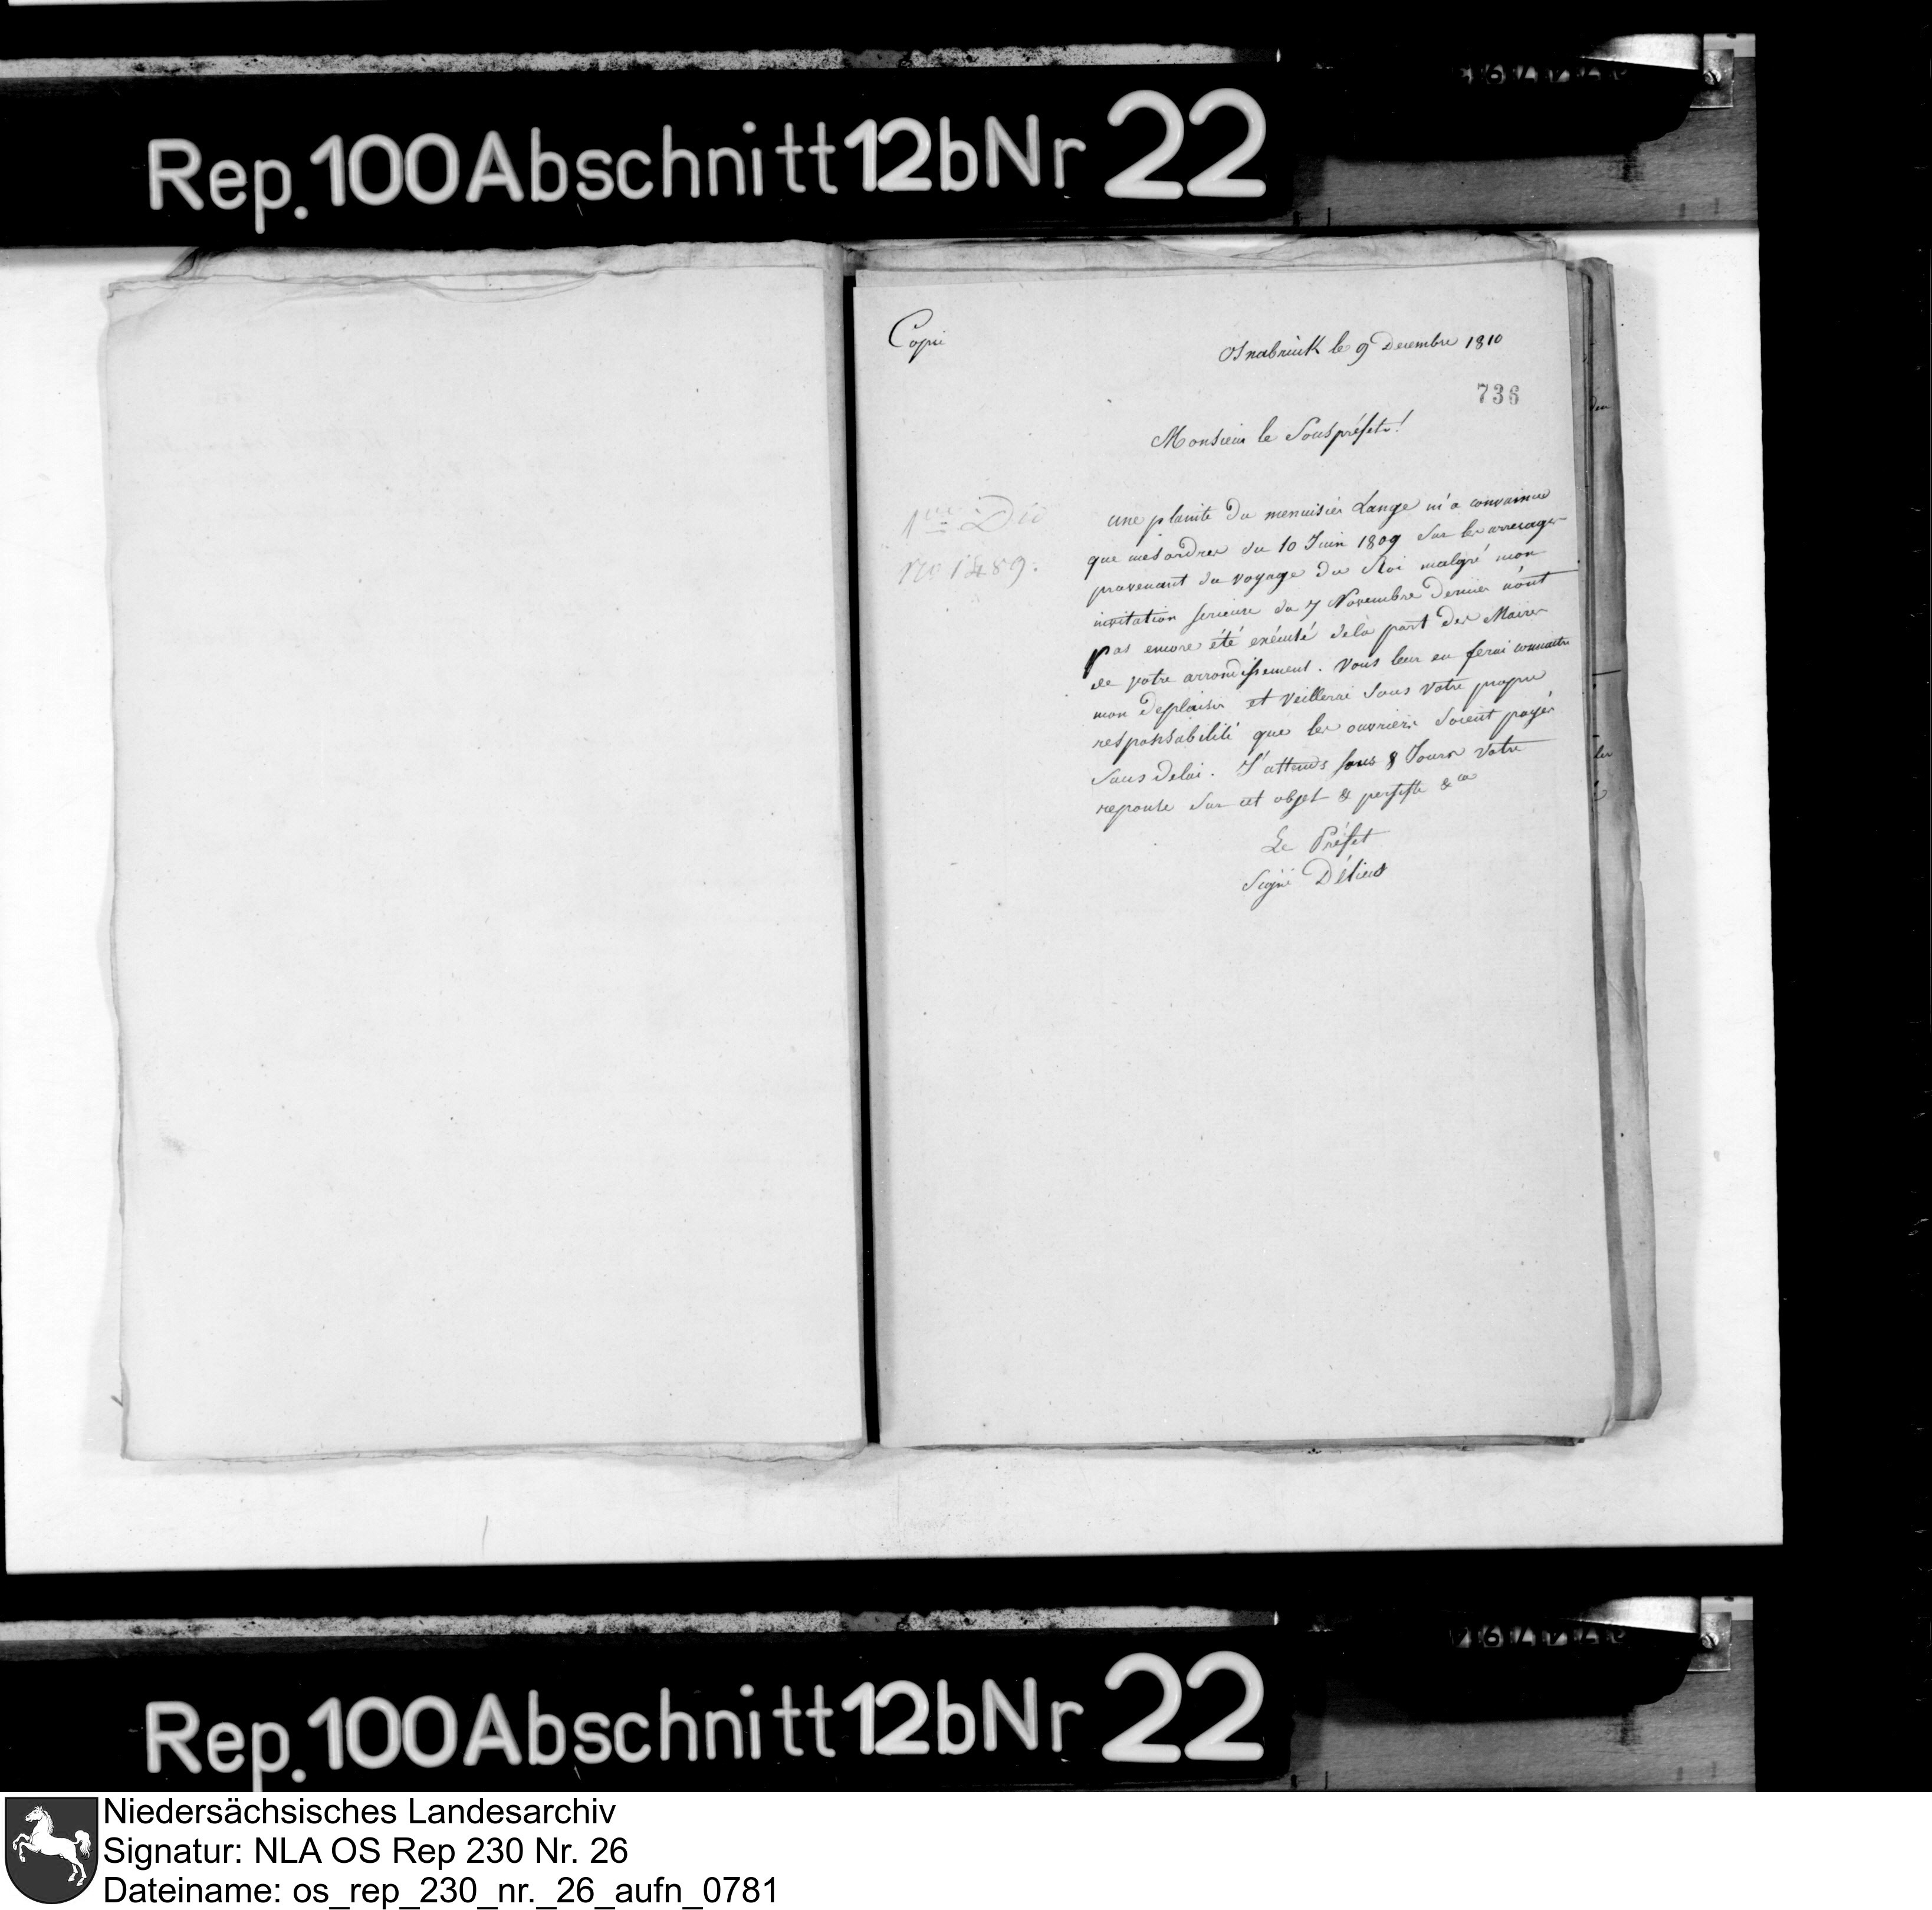 Rep. 100 Abschnitt 12b Nr 22
Copie
Osnabruck le 9 Decembre 1810
736
Monsieur le Souspréfet!
1ere Div
No 1489.
une plainte du menuisier Lange m'a convaincu
que mes ordres du 10 Juin 1809 sur les arrerages
provenant du voyage du Roi malgré mon
invitation serieuse du 7 Novembre dernier n'ont
pas encore été exécuté dela part des Maires
de votre arrondissement. Vous leur en ferai connaitre
mon deplaisir et veillerai sous votre propre
responsabilité que les ouvriers soient payés
sans delai. J'attends sous 8 Jours votre
reponse sur cet objet & persiste &ca
Le Préfet
Signé Délius
Rep. 100 Abschnitt 12b Nr 22
Niedersächsisches Landesarchiv
Signatur: NLA OS Rep 230 Nr. 26
Dateiname: os_rep_230_nr._26_aufn_0781